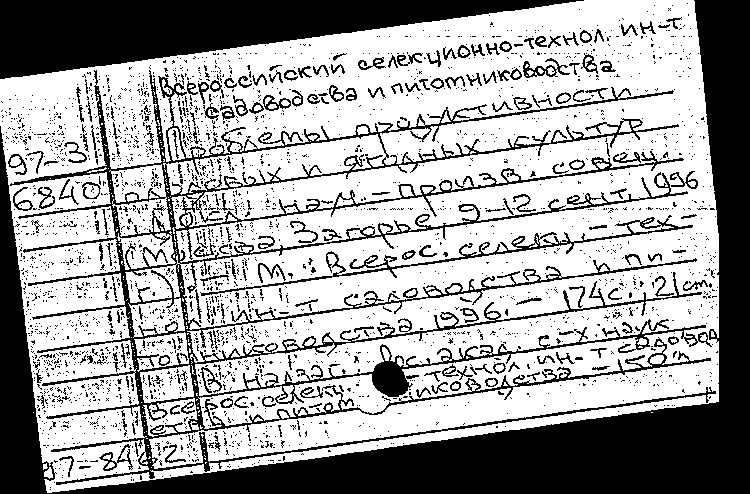 Всероссийский селекционно-технол. ин-т
садоводства и питомниководства
97-3 Проблемы продуктивности
6840 плодовых и ягодных культур
: Докл. науч.-произв. совещ.
(Москва, Загорье, 9-12 сент. 1996
г.). - М.: Всерос. селекц.-тех-
нол. ин-т садоводства и пи-
томниководства, 1996. - 174с.; 21см.
В надзаг.: Рос. акад. с.-х. наук
Всерос. селекц. технол. ин-т садовод
ства и питом иководства. - 150
97-8462